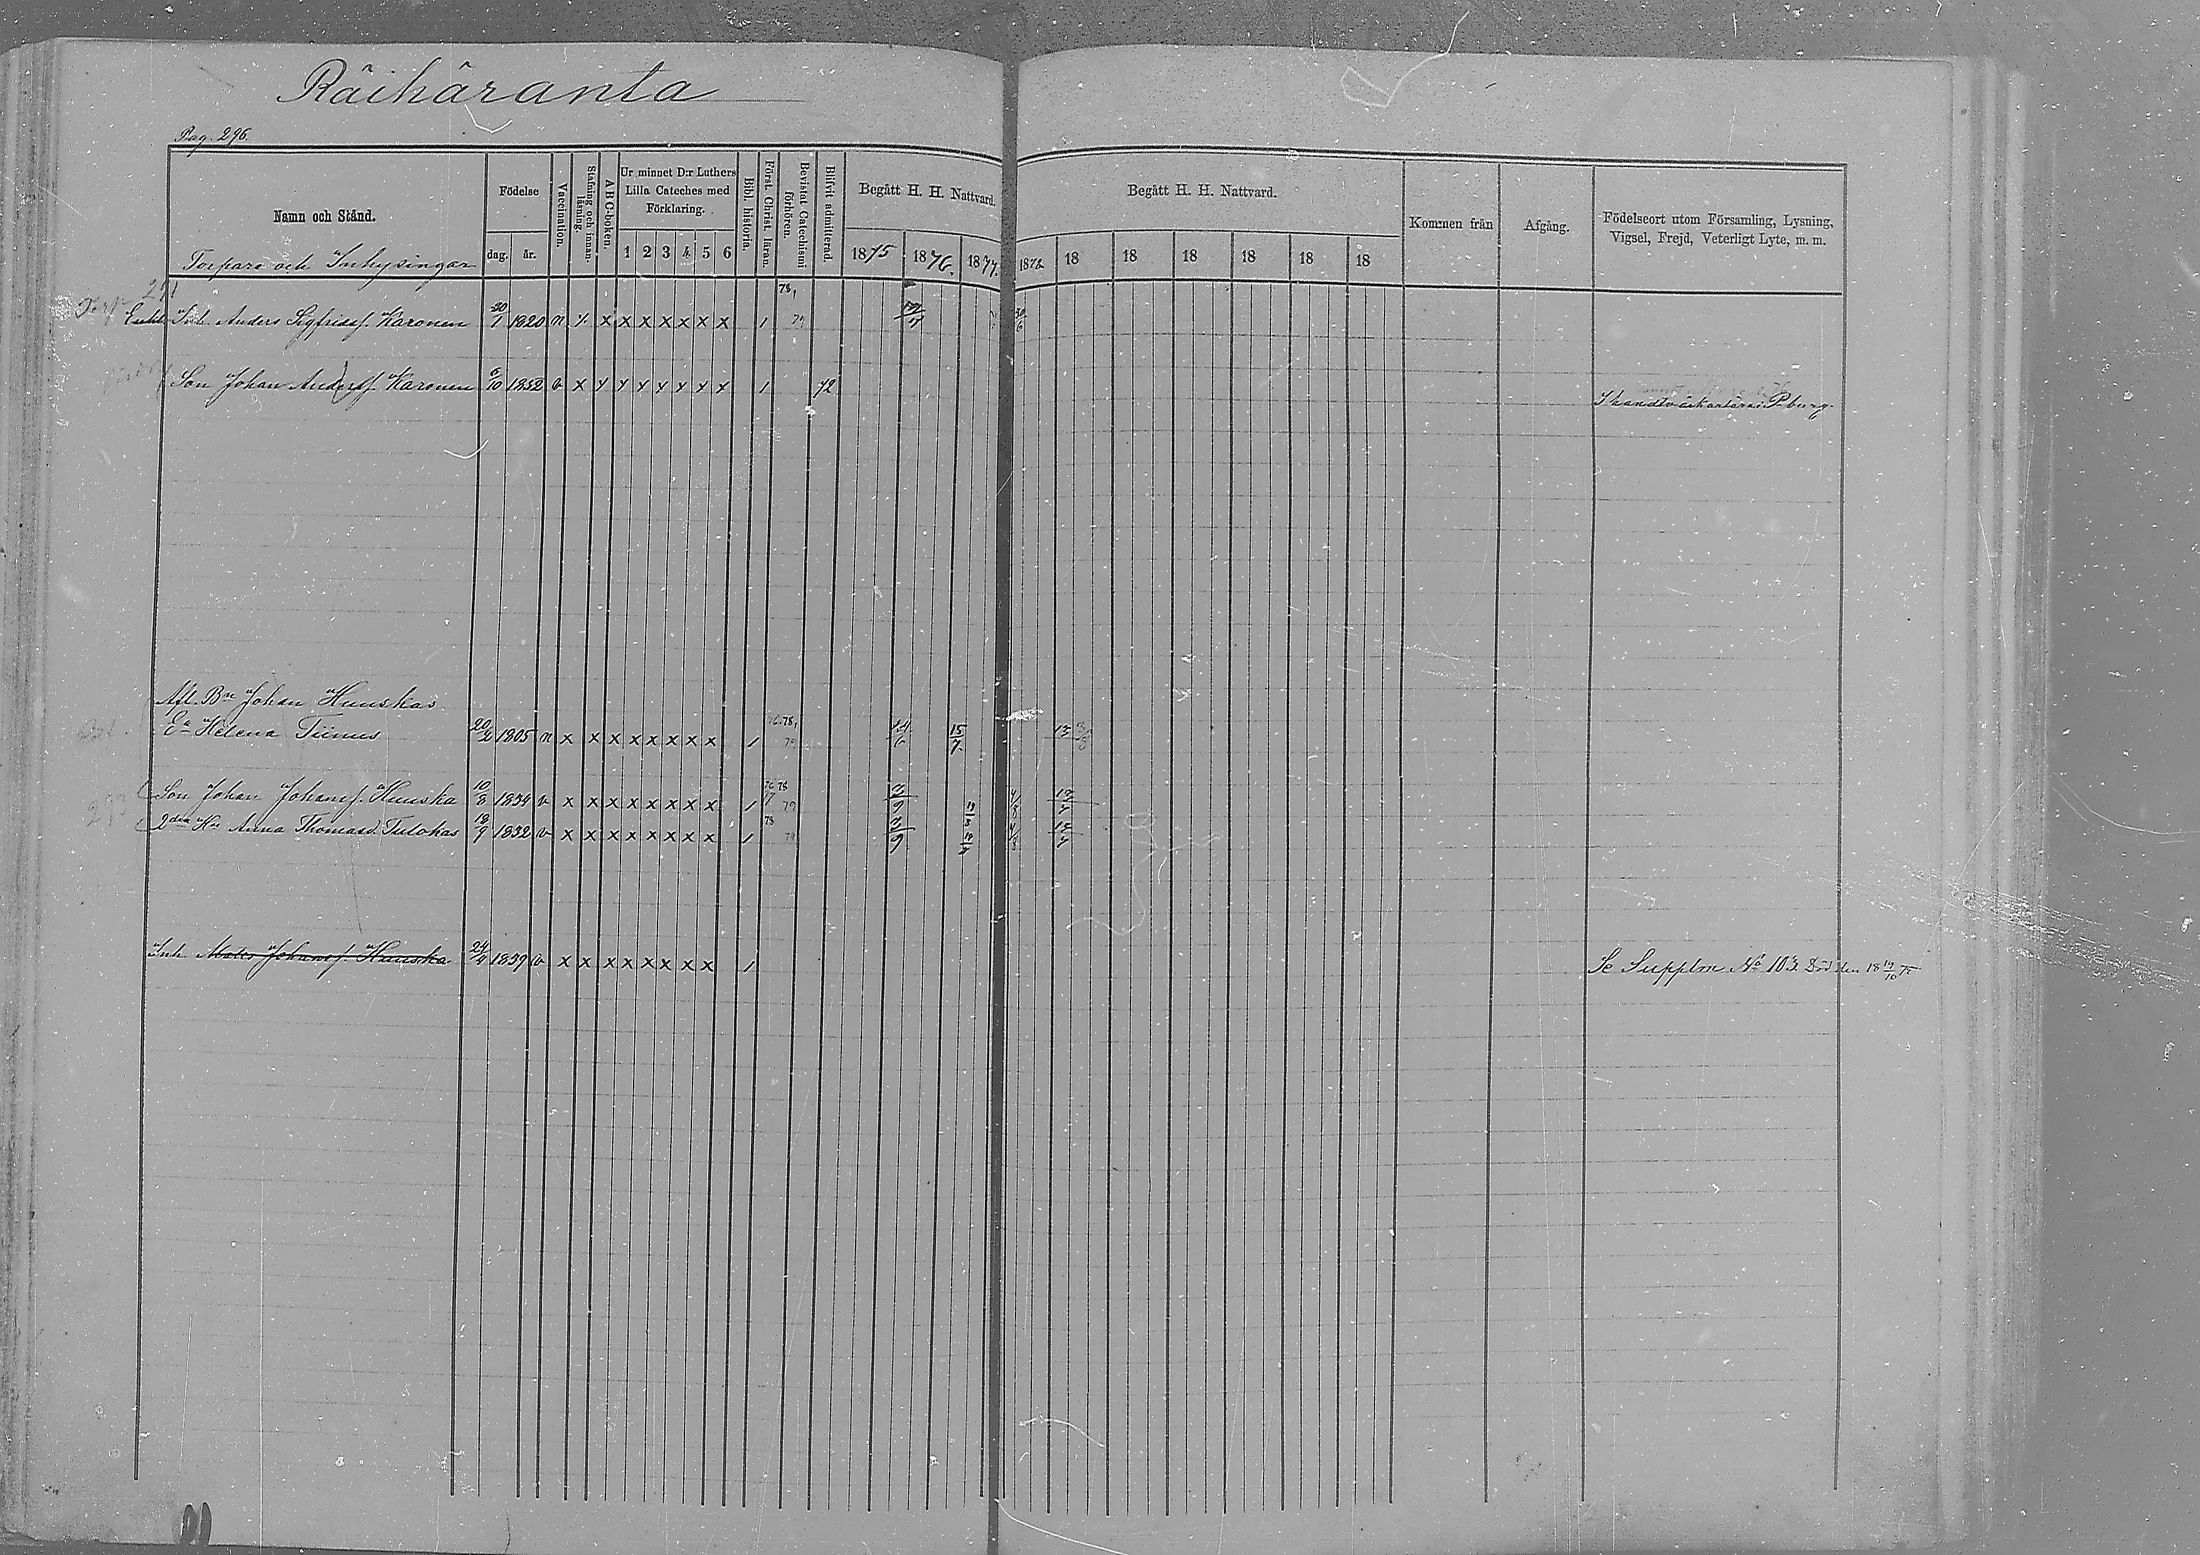 Räihäranta
Pag. 296.
Namn och Stånd.
Torpare och Inhysingar
Födelse
dag.
år.
Vaccination.
Stafning och innanläsning.
A B C-boken.
Ur minnet D:r Luthers Lilla Cateches med Förklaring.
1 2 3 4 5 6
Bibl. historia.
Först. Christ. läran.
Bevistat Catechismi förhören.
Blifvit admitterad
Begått H. H. Nattvard.
1875 1876. 1877.
Begått H. H. Nattvard.
1878 18 18 18 18 18 18
Kommen från
Afgång.
Födelseort utom Församling, Lysning, Vigsel, Frejd, Veterligt Lyte, m. m.
291
Enkl. Inh. Anders Sigfridsf. Karonen 20/1 1820 n x x x x x x x x 1 78, 79 30/6
Son Johan Andersf. Karonen 6/10 1852 v x x x x x x x x 1 72 P-burg.
Afl. Bn Johan Huuskas
Ea Helena Tiimus 20/2 1805 n x x x x x x x x 1 76. 78, 79 15/7
Son Johan Johansf. Huuska 10/8 1834 v x x x x x x x x 1 76 78 79
2dra Hu Anna Thomasd. Tulokas 18/9 1832 v x x x x x x x x 1 78
Inh Mats Johansf. Huuska 24/4 1839 v x x x x x x x x 1 Se Supplm No 103. Död den 18 19/10 75